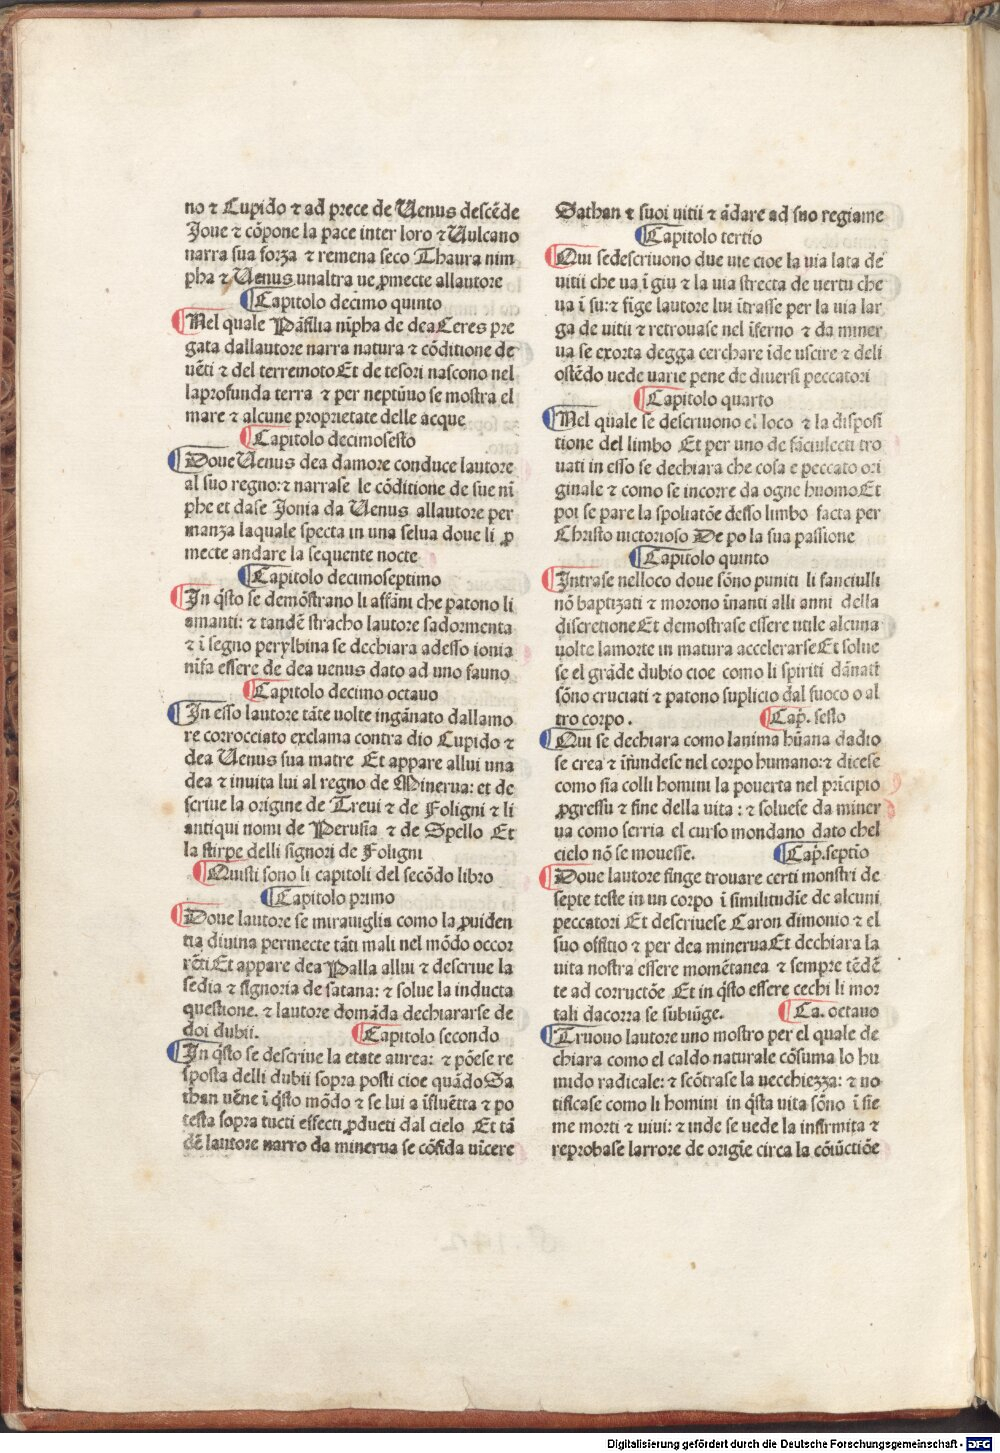 no ⁊ Cupido ⁊ ad prece de Uenus descēde
Joue ⁊ cōpone la pace inter loro ⁊ Uulcano
narra sua forza ⁊ remena seco Thaura nim
pha ⁊ Uenus unaltra ue ꝓmecte allautore
Capitolo decimo quinto
Nel quale Pāfilia nīpha de dea Ceres pre
gata dallautore narra natura ⁊ cōditione de
uēti ⁊ del terremoto Et de tesori nascono nel
laprofunda terra ⁊ per neptūuo se mostra el
mare ⁊ alcune proprietate delle acque
Capitolo decimosesto
Doue Uenus dea damore conduce lautore
al suo regno: ⁊ narrase le cōditione de sue nī
phe et dase Jonia da Uenus allautore per
manza laquale specta in una selua doue li ꝓ
mecte andare la sequente nocte
Capitolo decimoseptimo
In q̄sto se demōstrano li affāni che patono li
amanti: ⁊ tandē stracho lautore sadormenta
⁊ ī segno perylbina se dechiara adesso ionia
nīfa essere de dea uenus dato ad uno fauno
Capitolo decimo octauo
In esso lautore tāte uolte ingānato dallamo
re corrocciato exclama contra dio Cupido ⁊
dea Uenus sua matre Et appare allui una
dea ⁊ inuita lui al regno de Minerua: et de
scriue la origine de Treui ⁊ de Foligni ⁊ li
antiqui nomi de Perusia ⁊ de Spello Et
la stirpe delli signori de Foligni
Quisti sono li capitoli del secōdo libro
Capitolo primo
Doue lautore se mirauiglia como la ꝓuiden
tia diuina permecte tāti mali nel mōdo occor
rēti Et appare dea Palla allui ⁊ descriue la
sedia ⁊ signoria de satana: ⁊ solue la inducta
questione. ⁊ lautore domāda dechiararse de
doi dubii. Capitolo secondo
In q̄sto se descriue la etate aurea: ⁊ pōese re
sposta delli dubii sopra posti cioe quādo Sa
than uēne ī q̄sto mōdo ⁊ se lui a īfluētta ⁊ po
testa sopra tucti effecti ꝓdueti dal cielo Et tā
dē lautore narro da minerua se cōfida uīcere
Sathan ⁊ suoi uitii ⁊ ādare ad suo regiame
Capitolo tertio
Qui sedescriuono due uie cioe la uia lata de
uitii che ua ī giu ⁊ la uia strecta de uertu che
ua ī su: ⁊ fige lautore lui ītrasse per la uia lar
ga de uitii ⁊ retrouase nel īferno ⁊ da miner
ua se exorta degga cerchare īde uscire ⁊ deli
ostēdo uede uarie pene de diuersi peccatori
Capitolo quarto
Nel quale se descriuono el loco ⁊ la disposi
tione del limbo Et per uno de fāciulecti tro
uati in esso se dechiara che cosa e peccato ori
ginale ⁊ como se incorre da ogne huomo Et
poi se pare la spoliatōe desso limbo facta per
Christo uictorioso De po la sua passione
Capitolo quinto
Intrase nelloco doue sōno puniti li fanciulli
nō baptizati ⁊ morono īnanti alli anni della
discretione Et demostrase essere utile alcuna
uolte lamorte in matura accelerarse Et solue
se el grāde dubio cioe como li spiriti dānati
sōno cruciati ⁊ patono suplicio dal fuoco o al
tro corpo. Cap̄. sesto
Qui se dechiara como lanima hūana dadio
se crea ⁊ īfundese nel corpo humano: ⁊ dicese
como sia colli homini la pouerta nel prīcipio
ꝓgressu ⁊ fine della uita: ⁊ soluese da miner
ua como serria el curso mondano dato chel
cielo nō se mouesse. Cap̄. septīo
Doue lautore finge trouare certi monstri de
septe teste in un corpo ī similitudīe de alcuni
peccatori Et descriuese Caron dimonio ⁊ el
suo offitio ⁊ per dea minerua Et dechiara la
uita nostra essere momētanea ⁊ sempre tēdē
te ad corructōe Et in q̄sto essere cechi li mor
tali dacorra se subiūge. Ca. octauo
Truouo lautore uno mostro per el quale de
chiara como el caldo naturale cōsuma lo hu
mido radicale: ⁊ scōtrase la uecchiezza: ⁊ no
tificase como li homini in q̄sta uita sōno ī sie
me morti ⁊ uiui: ⁊ inde se uede la infirmita ⁊
reprobase larrore de origīe circa la cōiūctiōe
Digitalisierung gefördert durch die Deutsche Forschungsgemeinschaft - DFG